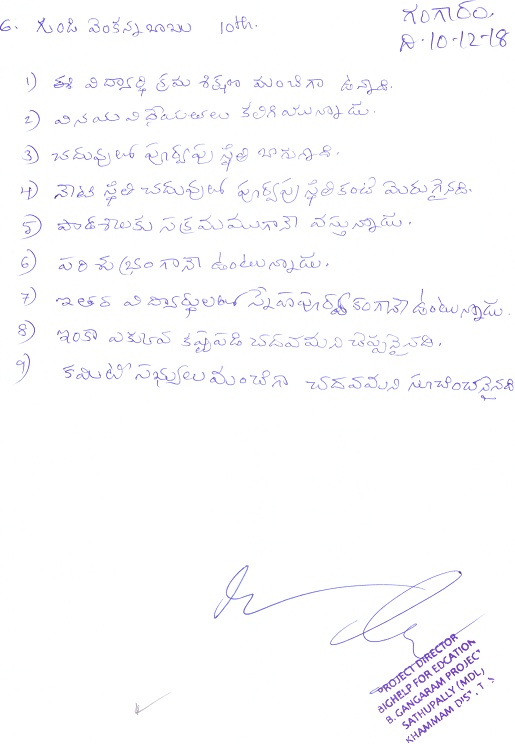 గంగారం,
ది-10-12-18
6. గుండి వెంకన్నబాబు 10th.
1) ఈ విద్యార్థి క్రమ శిక్షణ మంచిగా ఉన్నాది.
2) వినయ విధేయతలు కలిగియున్నాడు.
3) చదువులో పూర్వపు స్థితి బాగున్నది.
4) నేటి స్థితి చదువులో పూర్వపు స్థితికంటే మెరుగైనది.
5) పాఠశాలకు సక్రమముగానే వస్తున్నాడు.
6) పరిశుభ్రంగానే ఉంటున్నాడు.
7) ఇతర విద్యార్థులతో స్నేహపూర్వకంగానే ఉంటున్నాడు.
8) ఇంకా ఎక్కువ కష్టపడి చదవమని చెప్పనైనది.
9) కమిటీ సభ్యులు మంచిగా చదవమని సూచించనైనది
PROJECT DIRECTOR
BIGHELP FOR EDCATION
B. GANGARAM PROJECT
SATHUPALLY (MDL)
KHAMMAM DIST. T S